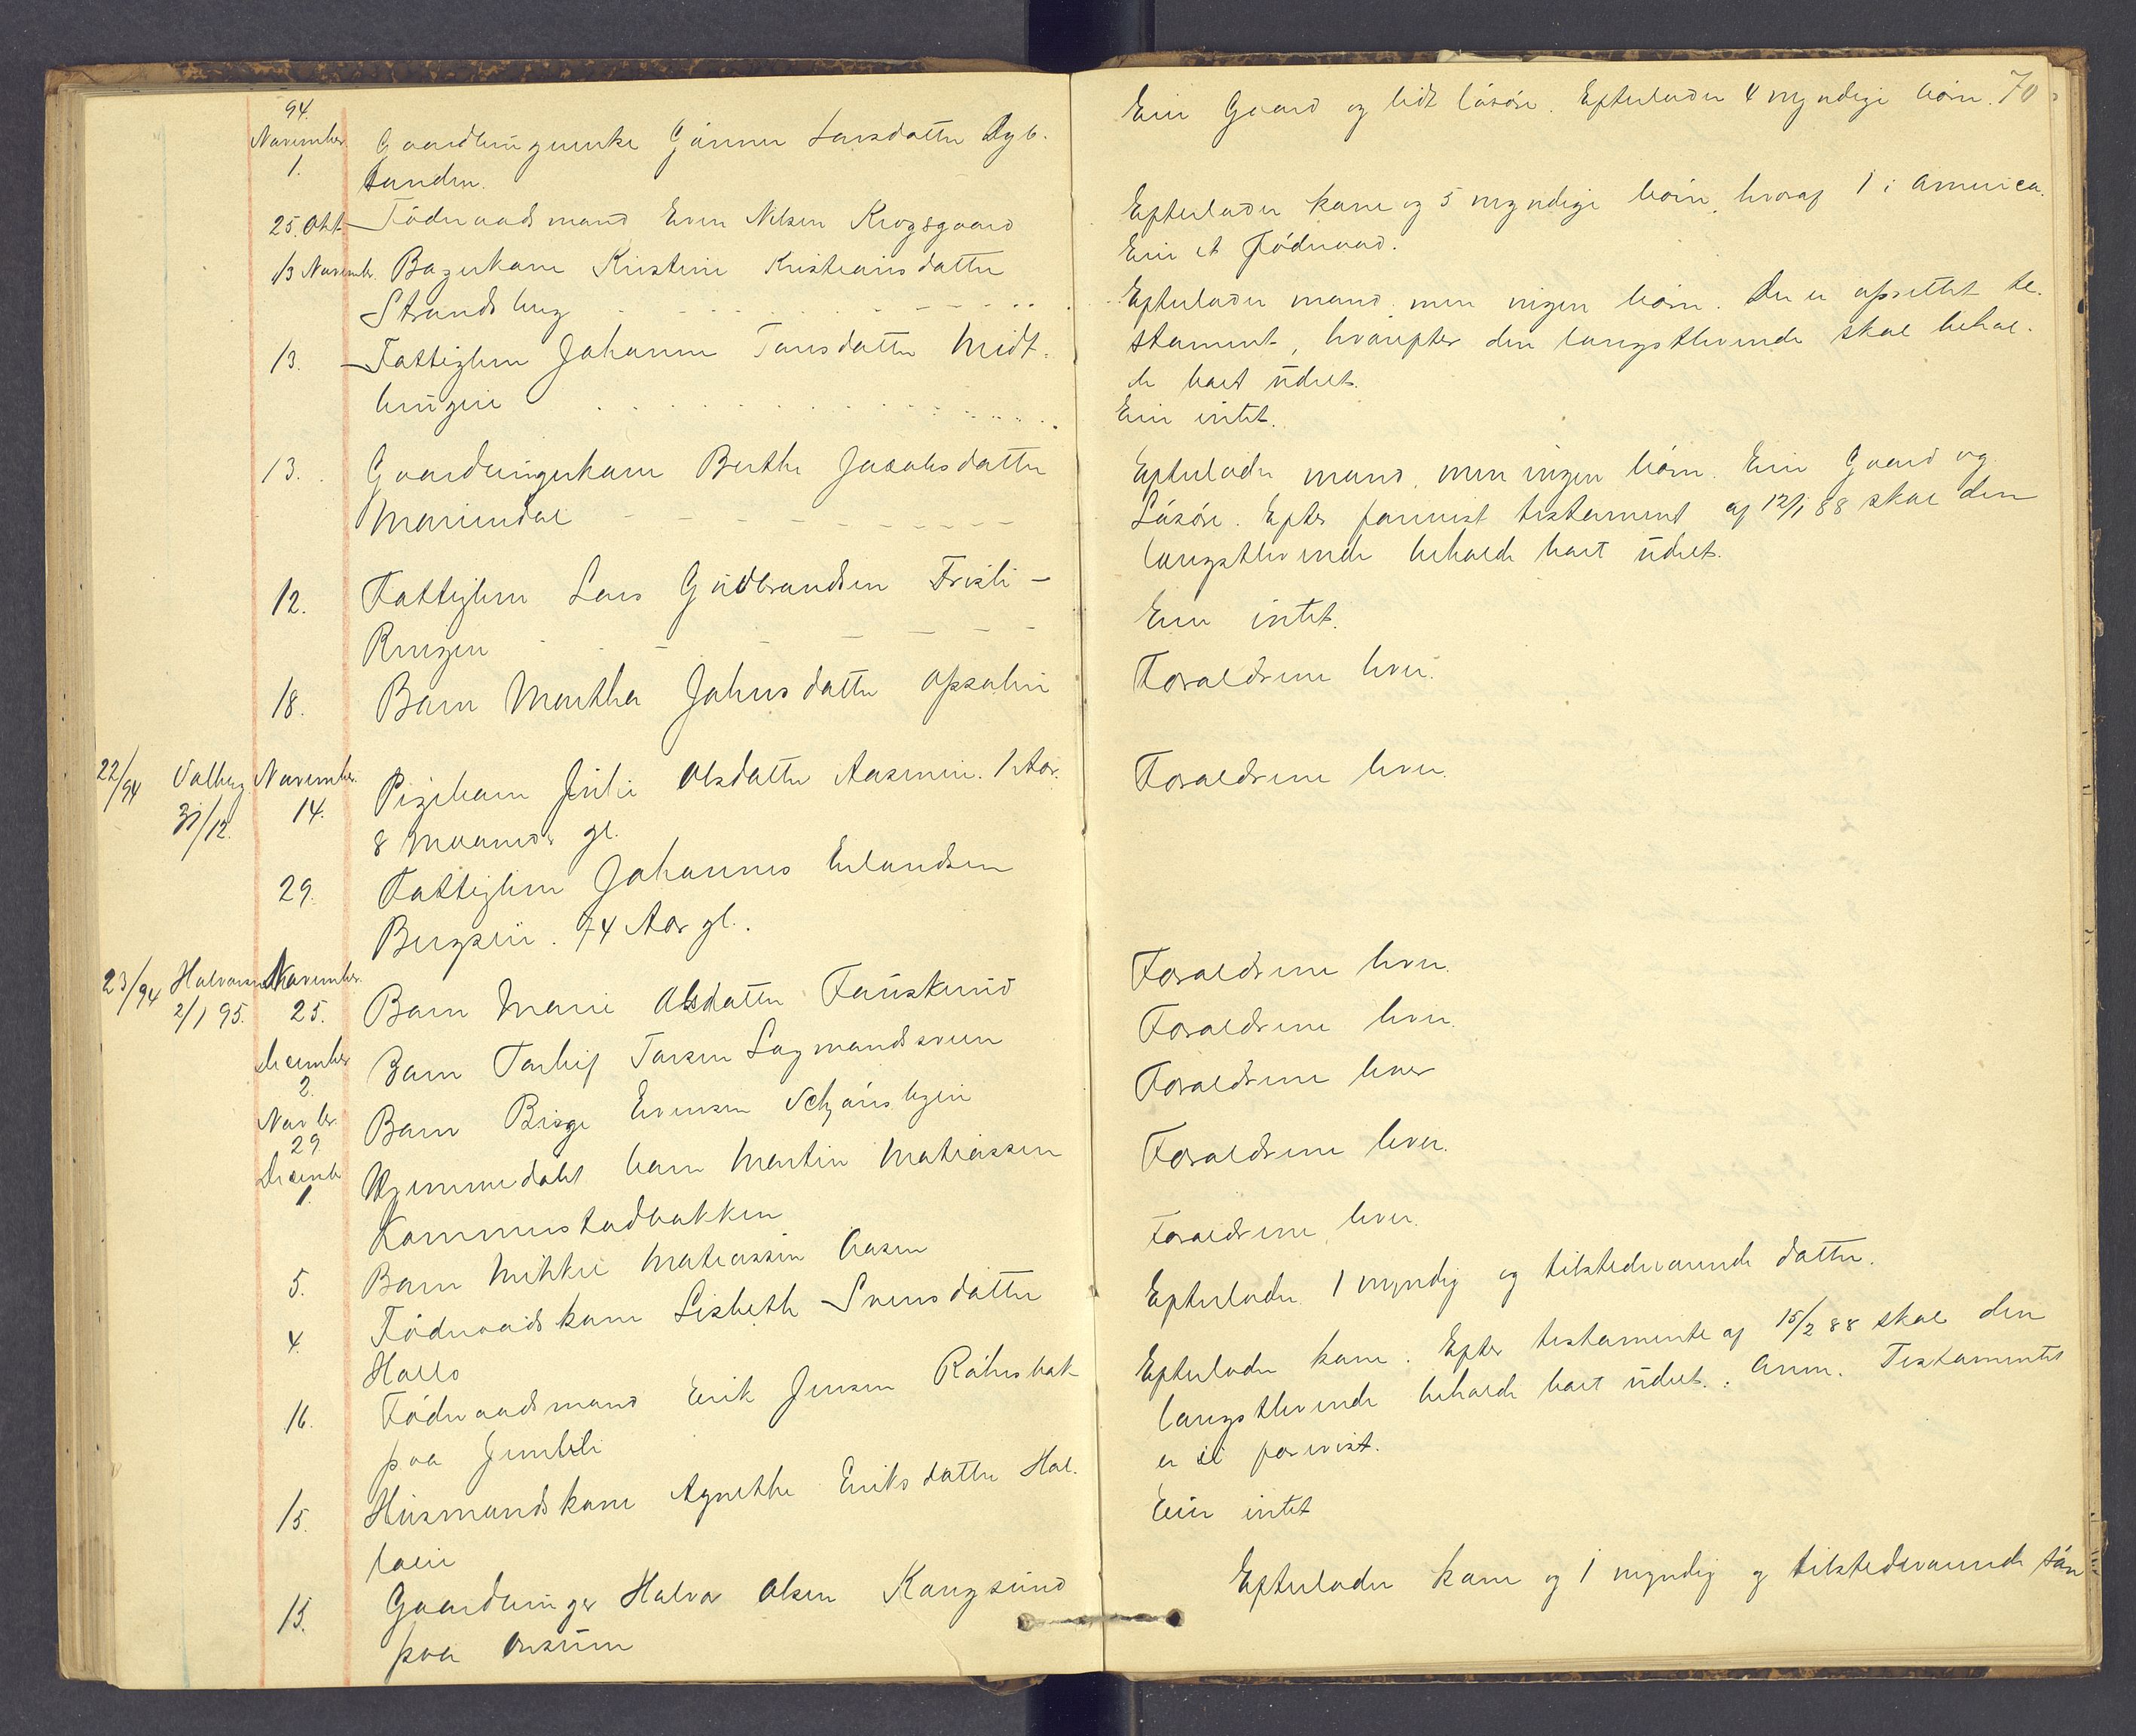 94.
November
1. Gaardbrugerenke Gunner Larsdatter Dyb-
sanden.
25. Okt. Föderaadsmand Even Nilsen Krogsgaard
13 Novembr. Bagerkone Kristine Kristiansdatter
Strandberg
13. Fattiglem Johanne Tansdatter Midt-
bringen
13. Gaardbrugerkone Berthe Jacobsdatter
Mariendal
12. Fattiglem Lars Gudbrandsen Frisli-
Ringen
18. Barn Martha Johnsdatter Opsalen
22/94 Valberg 31/12. November 14. Pigebarn Julie Olsdatter Aasmein. 1 Aar.
8 Maaneder gl.
29. Fattiglem Johannes Erlandsen
Bergsein. 74 Aar gl.
23/94 Halvorsen 2/1 95. November 25. Barn Marie Olsdatter Fauskerud
December 2. Barn Torleif Torsen Lagmandsveen
Novbr. 29 Barn Birge Evensen Schjönsbyen
Decembr 1. Hjemmedøbt barn Martin Matiassen
Kommerstadbakken
5. Barn Mikkel Matiassen Aasen
4. Föderaadskone Lisbeth Svensdatter
Hallo
16. Föderaadsmand Erik Jensen Röhnsbak-
paa Jimble
15. Husmandskone Agnethe Eriksdatter Hol-
loein
15. Gaardbruger Halvor Olsen Kongsund
paa Onsum
70
Eier Gaard og lidt lösöre. Efterlader 4 myndige börn.
Efterlader kone og 5 myndige börn, hvoraf 1 i America.
Eier et Föderaad.
Efterlader mand, men ingen börn. Der er oprettet te-
stament, hvorefter den længstlevende skal behol-
de boet udelt.
Eier intet.
Efterlader mand, men ingen börn. Eier Gaard og
Lösöre. Efter forevist testament af 12/1 88 skal den
længstlevende beholde boet udelt.
Eier intet.
Forældrene lever.
Forældrene lever.
Forældrene lever.
Forældrene lever.
Forældrene lever
Forældrene lever.
Forældrene lever.
Efterlader 1 myndig og tilstedeværende datter.
Efterlader kone. Efter testamente af 15/2 88 skal den
længstlevende beholde boet udelt. Anm. Testamentet
er ei forevist.
Eier intet
Efterlader kone og 1 myndig og tilstedeværende sön